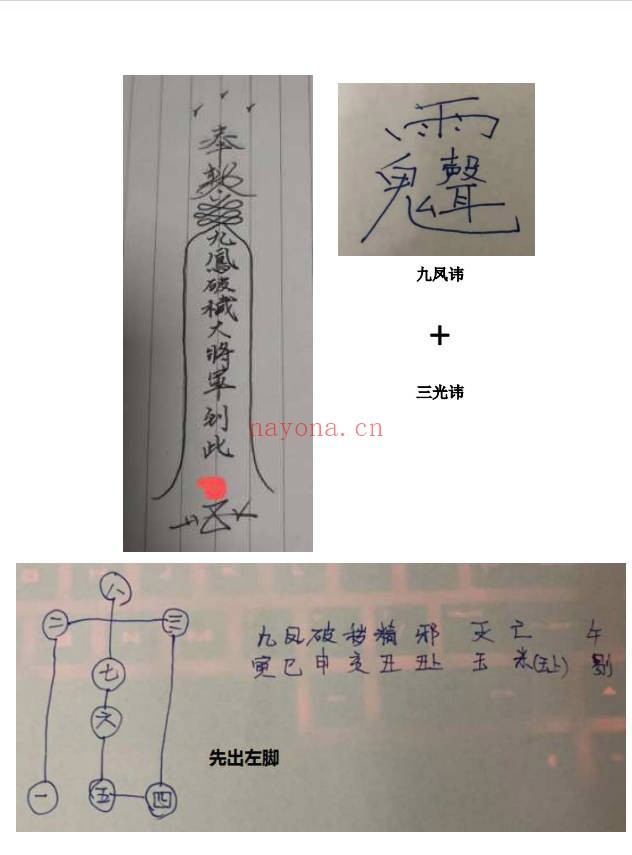 奉
敕
九鳳破穢大將軍到此
九凤讳
+
三光讳
nayona.cn
八
二 三
七
六
一 五 四
先出左脚
九凤破秽精邪 灭亡 午
寅巳申亥丑